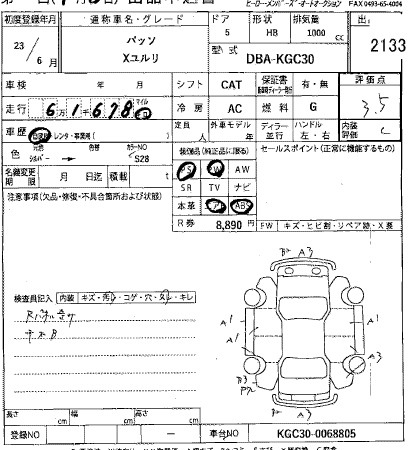 ヒーロー・メンバーズ・オートオークション FAX 0493-65-4004
初度登録年月 通称車名・グレード ドア 形状 排気量 出
23/6月 パッソ Xユルリ 5 HB 1000 cc 2133
型式 DBA-KGC30
車検 年 月 シフト CAT 保証書 有・無 評価点 3.5
走行 61678 マイル 冷房 AC 燃料 G
車歴 自家用 レンタ・事業用( ) 定員 人 外車モデル 年 ディーラー 並行 ハンドル 左・右 内装評価 C
色 元色 シルバー → 色 カラーNO S28 装備品(純正品に限る) セールスポイント(正常に機能するもの)
PS PW AW
名義変更期限 月 日迄 積載 t SR TV ナビ
注意事項(欠品・修復・不具合箇所および状態) 本革 エアB ABS
R券 8,890 円 FW キズ・ヒビ割・リペア跡・X要
検査員記入 内装 キズ・汚レ・コゲ・穴・タレ・キレ
A3
A1 A1
A1 A3
B3
A3
長さ cm 幅 cm 高さ cm
登録NO ー 車台NO KGC30-0068805